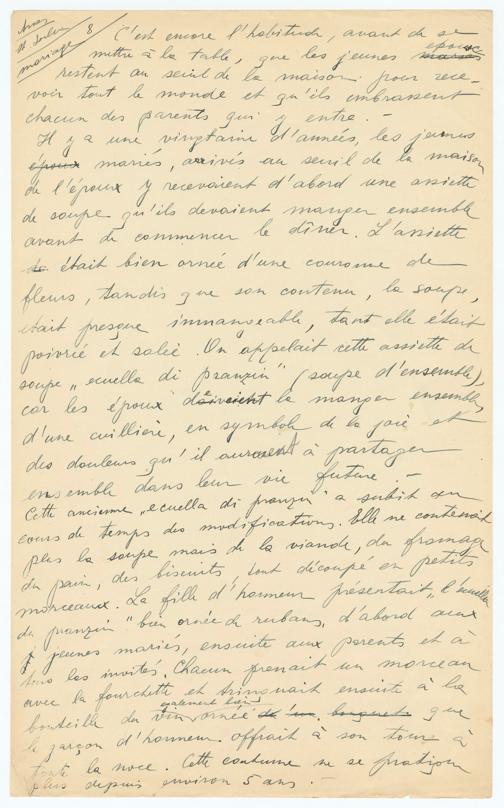 mariage 8
C'est encore l'habitude, avant de se
mettre à la table, que les jeunes mariés époux
restent au seuil de la maison pour rece-
voir tout le monde et qu'ils embrassent
chacun des parents qui y entre. -
Il y a une vingtaine d'années, les jeunes
époux mariés, arrivés au seuil de la maison
de l'époux y recevaient d'abord une assiette
de soupe qu'ils devaient manger ensemble
avant de commencer le dîner. L'assiette
de était bien ornée d'une couronne de
fleurs, tandis que son contenu, la soupe,
était presque immangeable, tant elle était
poivrié et salée. On appelait cette assiette de
soupe „ecuella di pranzin" (soupe d'ensemble),
car les époux devaient la manger ensemble,
d'une cuillière, en symbole de la joie et
des douleurs qu'il auraient à partager
ensemble dans leur vie future. -
Cette ancienne „ecuella di pranzin" a subit au
cours de temps des modifications. Elle ne contenait
plus la soupe mais de la viande, du fromage
du pain, des biscuits, tout découpé en petits
morceaux. La fille d'honneur présentait „l'ecuella
di pranzin" bien ornée de rubans, d'abord aux
jeunes mariés, ensuite aux parents et à
tous les invités. Chacun prenait un morceau
avec la fourchette et trinquait ensuite à la
bouteille du vin également bien ornée d'un bouquet que
le garçon d'honneur offrait à son tour à
toute la noce. Cette coutume ne se pratique
plus depuis environ 5 ans. -